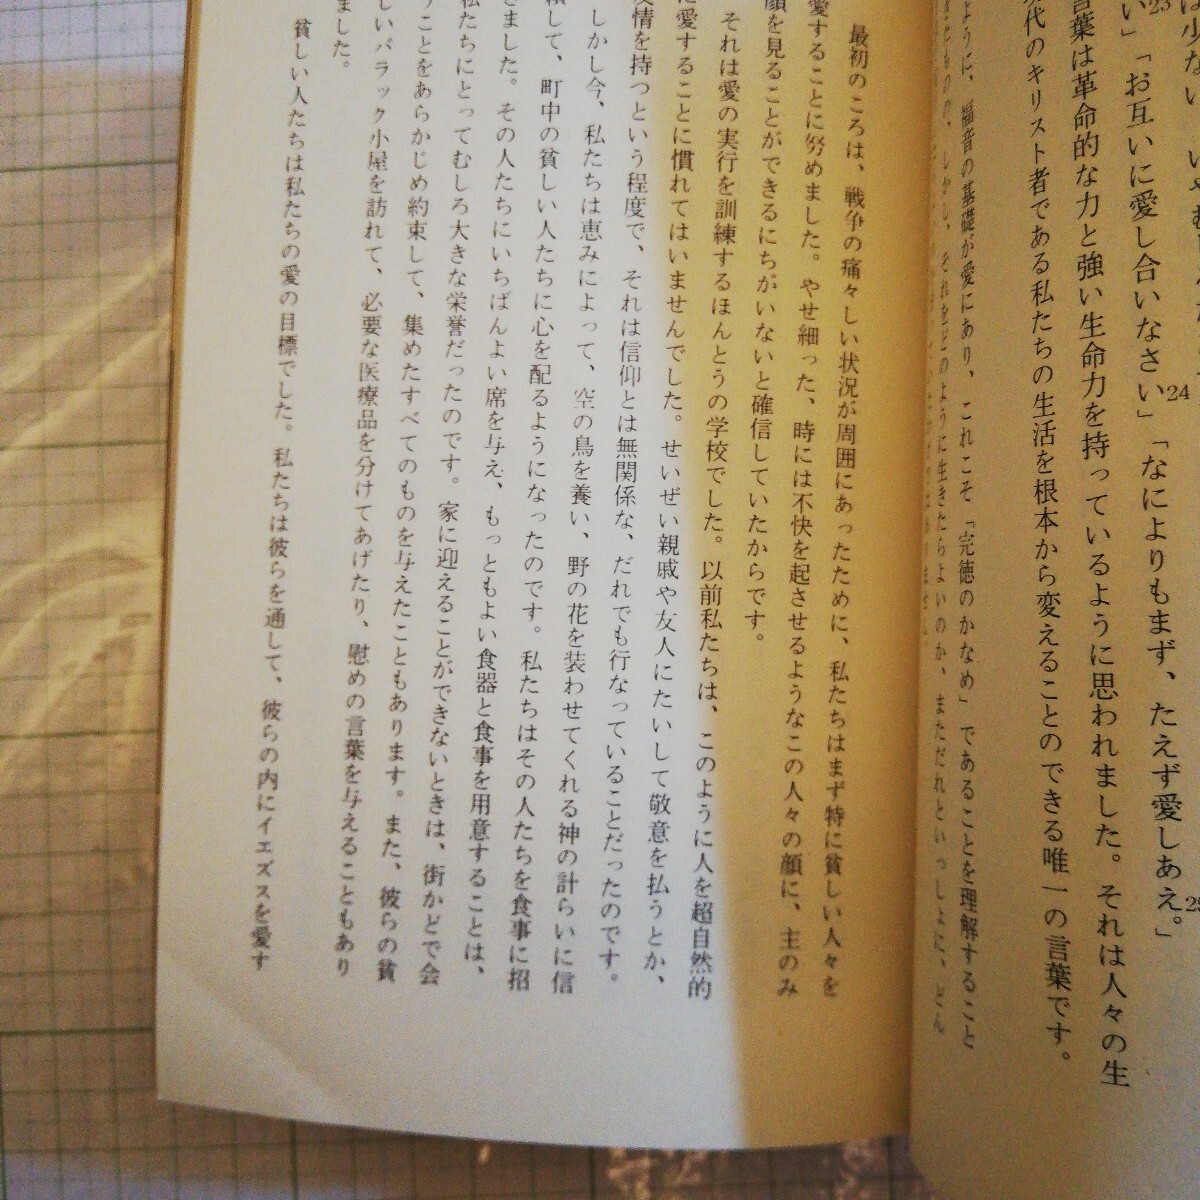 は少ない
い」23「お互いに愛し合いなさい」24「なによりもまず、たえず愛しあえ。」25
言葉は革命的な力と強い生命力を持っているように思われました。それは人々の生
代のキリスト者である私たちの生活を根本から変えることのできる唯一の言葉です。
ように、福音の基礎が愛にあり、これこそ「完徳のかなめ」であることを理解すること
しかし、それをどのように生きたらよいのか、まただれといっしょに、どん
最初のころは、戦争の痛々しい状況が周囲にあったために、私たちはまず特に貧しい人々を
愛することに努めました。やせ細った、時には不快を起させるようなこの人々の顔に、主のみ
顔を見ることができるにちがいないと確信していたからです。
それは愛の実行を訓練するほんとうの学校でした。以前私たちは、このように人を超自然的
に愛することに慣れてはいませんでした。せいぜい親戚や友人にたいして敬意を払うとか、
友情を持つという程度で、それは信仰とは無関係な、だれでも行なっていることだったのです。
しかし今、私たちは恵みによって、空の鳥を養い、野の花を装わせてくれる神の計らいに信
頼して、町中の貧しい人たちに心を配るようになったのです。私たちはその人たちを食事に招
きました。その人たちにいちばんよい席を与え、もっともよい食器と食事を用意することは、
私たちにとってむしろ大きな栄誉だったのです。家に迎えることができないときは、街かどで会
うことをあらかじめ約束して、集めたすべてのものを与えたこともあります。また、彼らの貧
しいバラック小屋を訪れて、必要な医療品を分けてあげたり、慰めの言葉を与えることもあり
ました。
貧しい人たちは私たちの愛の目標でした。私たちは彼らを通して、彼らの内にイエズスを愛す